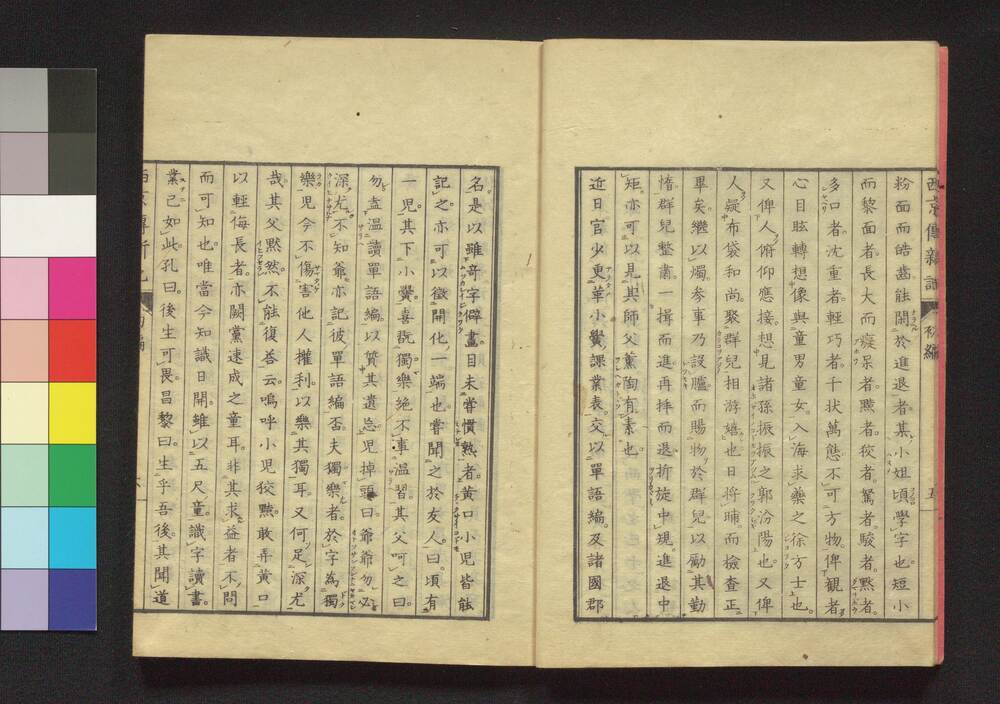 西京傳新記 初編 五
粉面而皓齒能閙於進退者某小姐頃學字也短小
而黎面者長大而癡呆者黠者狡者駑者駿者黙者
多口者沈重者輕巧者千狀萬態不可方物俾觀者
心目眩轉想像與童男童女入海求藥之徐方士也
又俾人俯仰應接想見諸孫振振之郭汾陽也又俾
人疑布袋和尚聚群兒相游嬉也日將晡而檢査正
畢矣繼以燭参事乃設臚而賜物於群兒以勵其勤
惰群兒整肅一揖而進再拝而退折旋中規進退中
矩亦可以見其師父薫陶有素也
近日官少更革小黌課業表交以單語編及諸國郡
名是以雖竒字僻畫目未嘗慣熟者黄口小児皆能
記之亦可以徵開化一端也甞聞之於友人曰頃有
一児其下小黌喜翫獨樂絶不事温習其父呵之曰
勿盍温讀單語編以質其遺忘児掉頭曰爺爺勿必
深尤不知爺亦記彼單語編否夫獨樂者於字為獨
樂児今不傷害他人權利以樂其獨耳又何足深尤
哉其父黙然不能復荅云嗚呼小児狡黠敢弄黄口
以輕侮長者亦闕黨速成之童耳非其求益者不問
而可知也唯當今知識日開雖以五尺童識字讀書
業已如此孔曰後生可畏昌黎曰生乎吾後其聞道